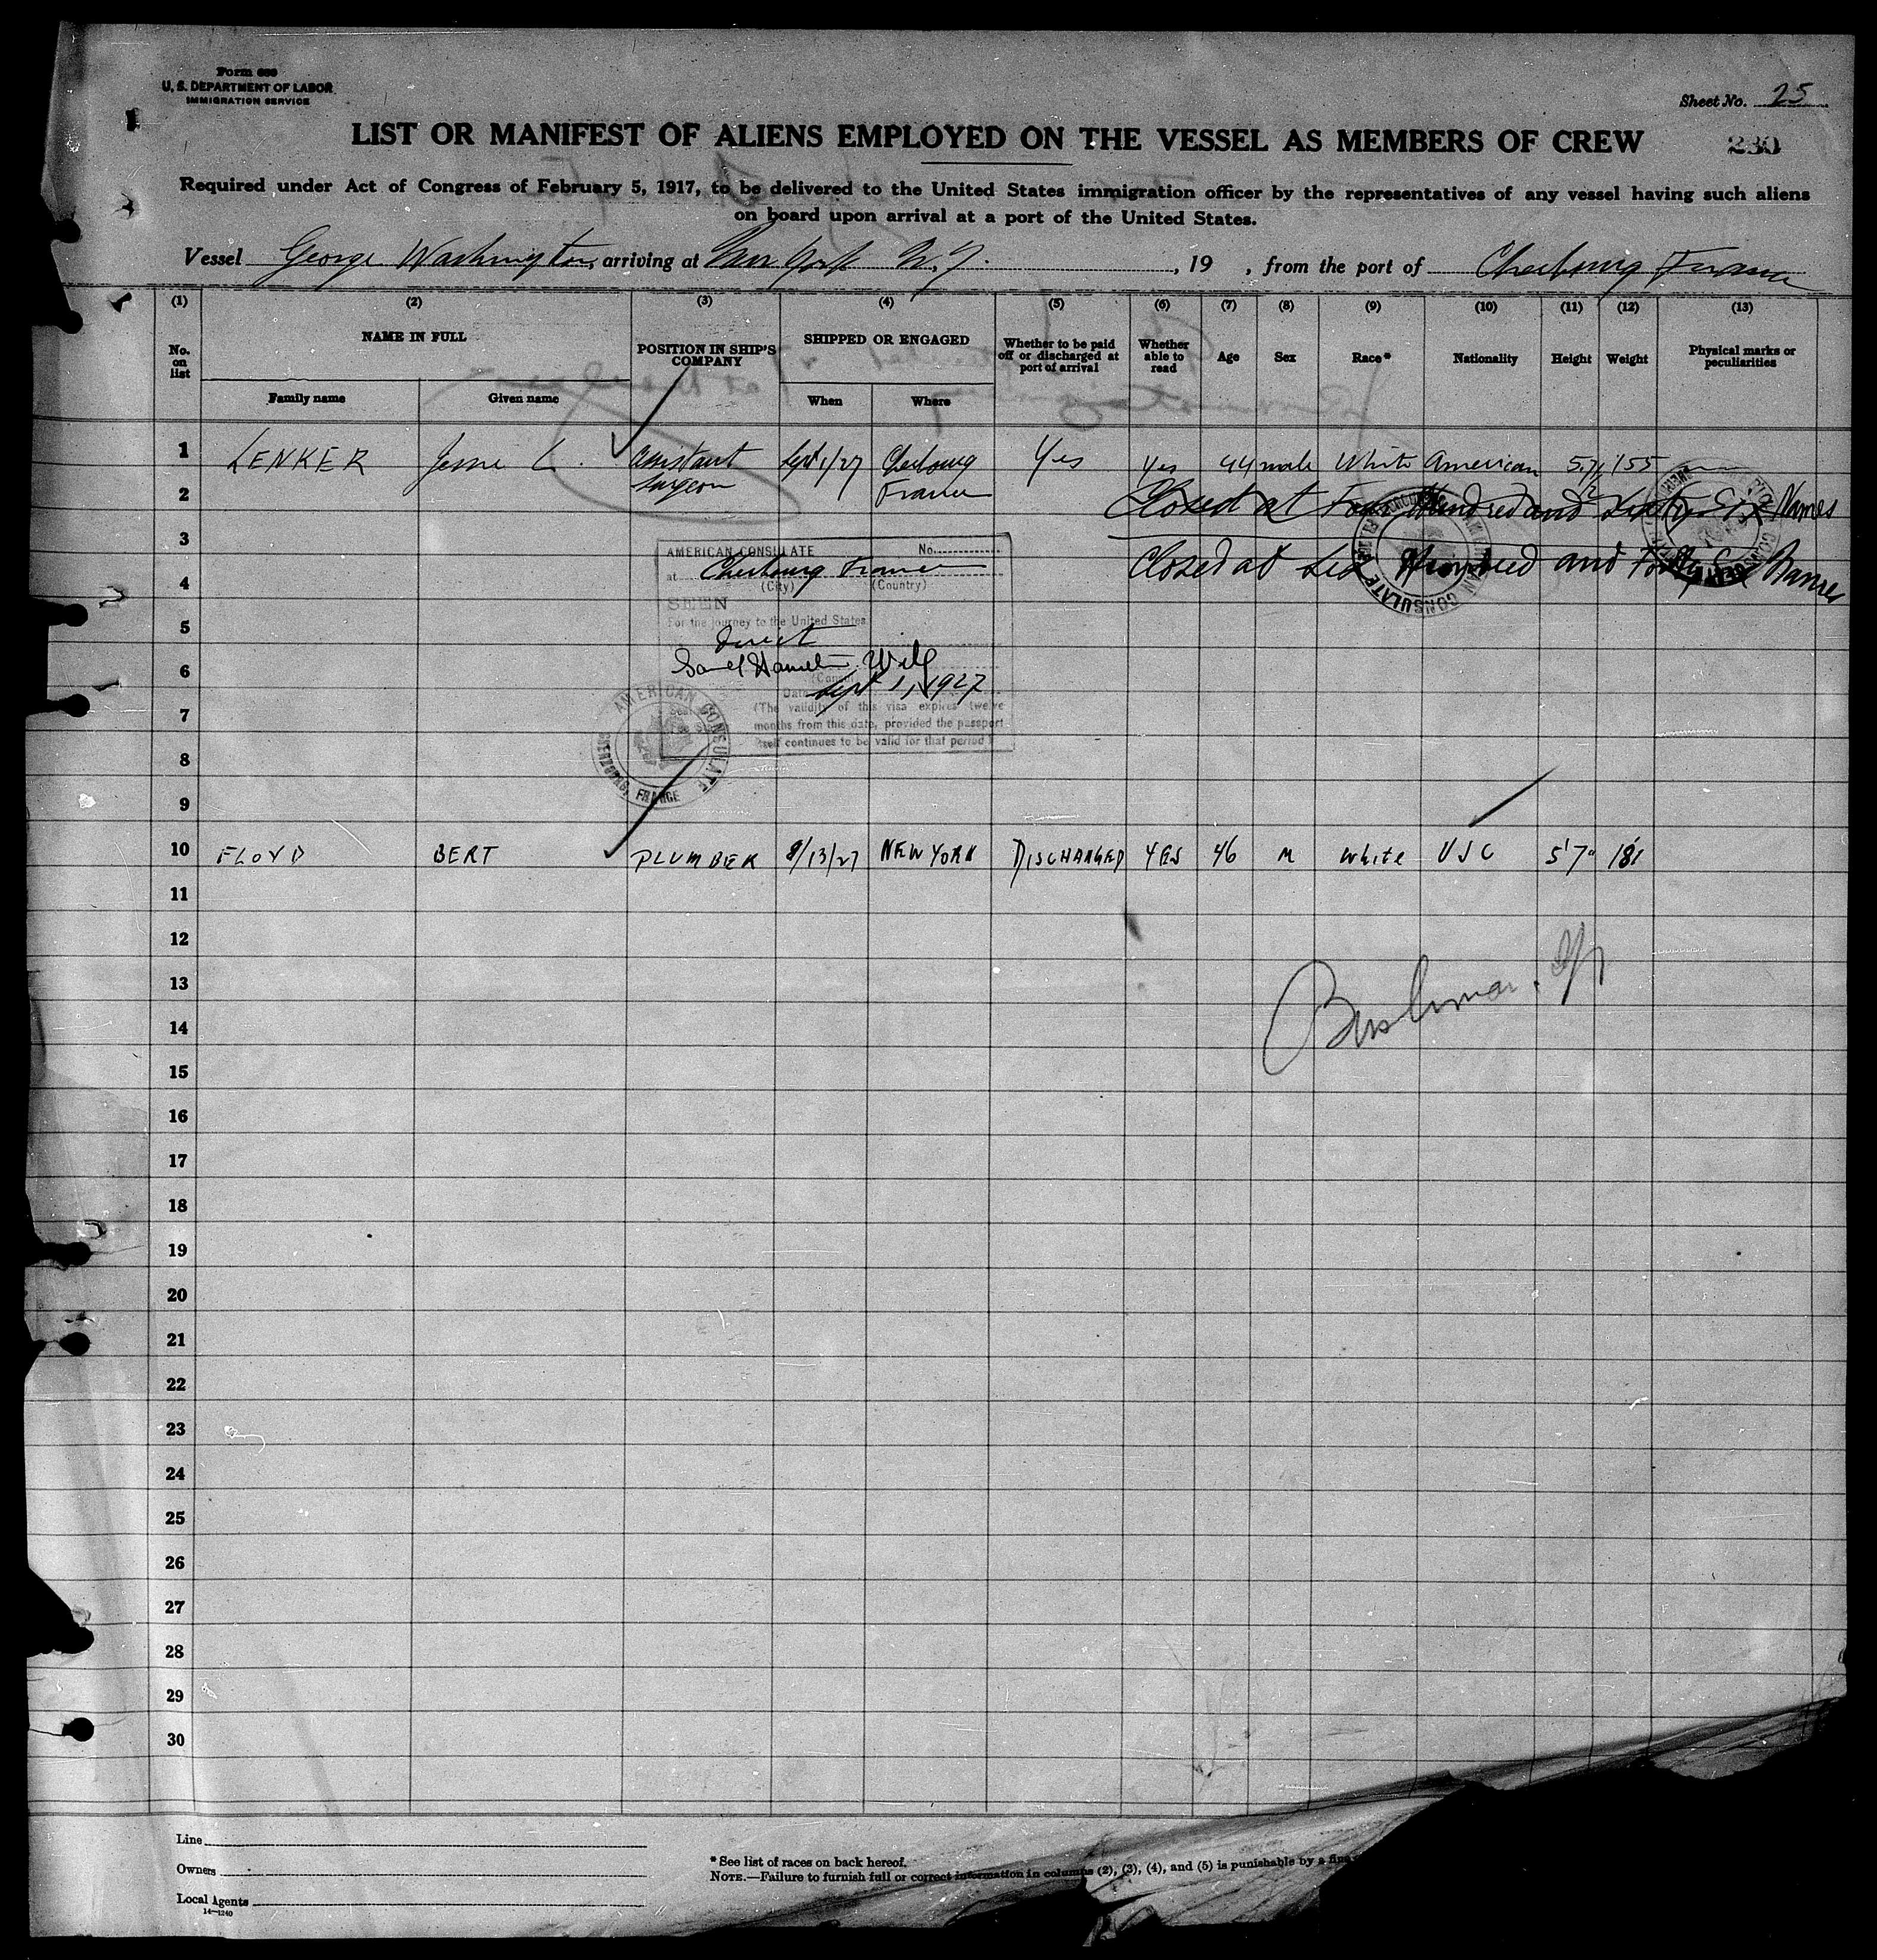 Form 680
U. S. DEPARTMENT OF LABOR
IMMIGRATION SERVICE
Sheet No. 25
LIST OR MANIFEST OF ALIENS EMPLOYED ON THE VESSEL AS MEMBERS OF CREW
230
Required under Act of Congress of February 5, 1917, to be delivered to the United States immigration officer by the representatives of any vessel having such aliens
on board upon arrival at a port of the United States.
Vessel George Washington, arriving at New York N.Y. , 19 , from the port of Cherbourg France
(1) (2) (3) (4) (5) (6) (7) (8) (9) (10) (11) (12) (13)
No. on list
NAME IN FULL
Family name Given name
POSITION IN SHIP'S COMPANY
SHIPPED OR ENGAGED
When Where
Whether to be paid off or discharged at port of arrival
Whether able to read
Age
Sex
Race*
Nationality
Height
Weight
Physical marks or peculiarities
1 LENKER Jesse L. assistant surgeon Sept 1/27 Cherbourg France Yes Yes 44 male White American 5.7 1/2 155
2 Closed at Four Hundred and Sixty Six Names
3
Closed at Six Hundred and Names
4
5
6
7
8
9
AMERICAN CONSULATE No.
at Cherbourg France
(City) (Country)
SEEN
For the journey to the United States
direct
Sept 1, 1927
(The validity of this visa expires twelve
months from this date, provided the passport
itself continues to be valid for that period)
AMERICAN CONSULATE
CHERBOURG, FRANCE
10 FLOYD BERT PLUMBER 8/13/27 NEW YORK DISCHARGED YES 46 M White USC 5'7" 181
11
12
13
14
15
16
17
18
19
20
21
22
23
24
25
26
27
28
29
30
Line
Owners
Local Agents
14—1240
* See list of races on back hereof.
NOTE.—Failure to furnish full or correct information in columns (2), (3), (4), and (5) is punishable by a fine